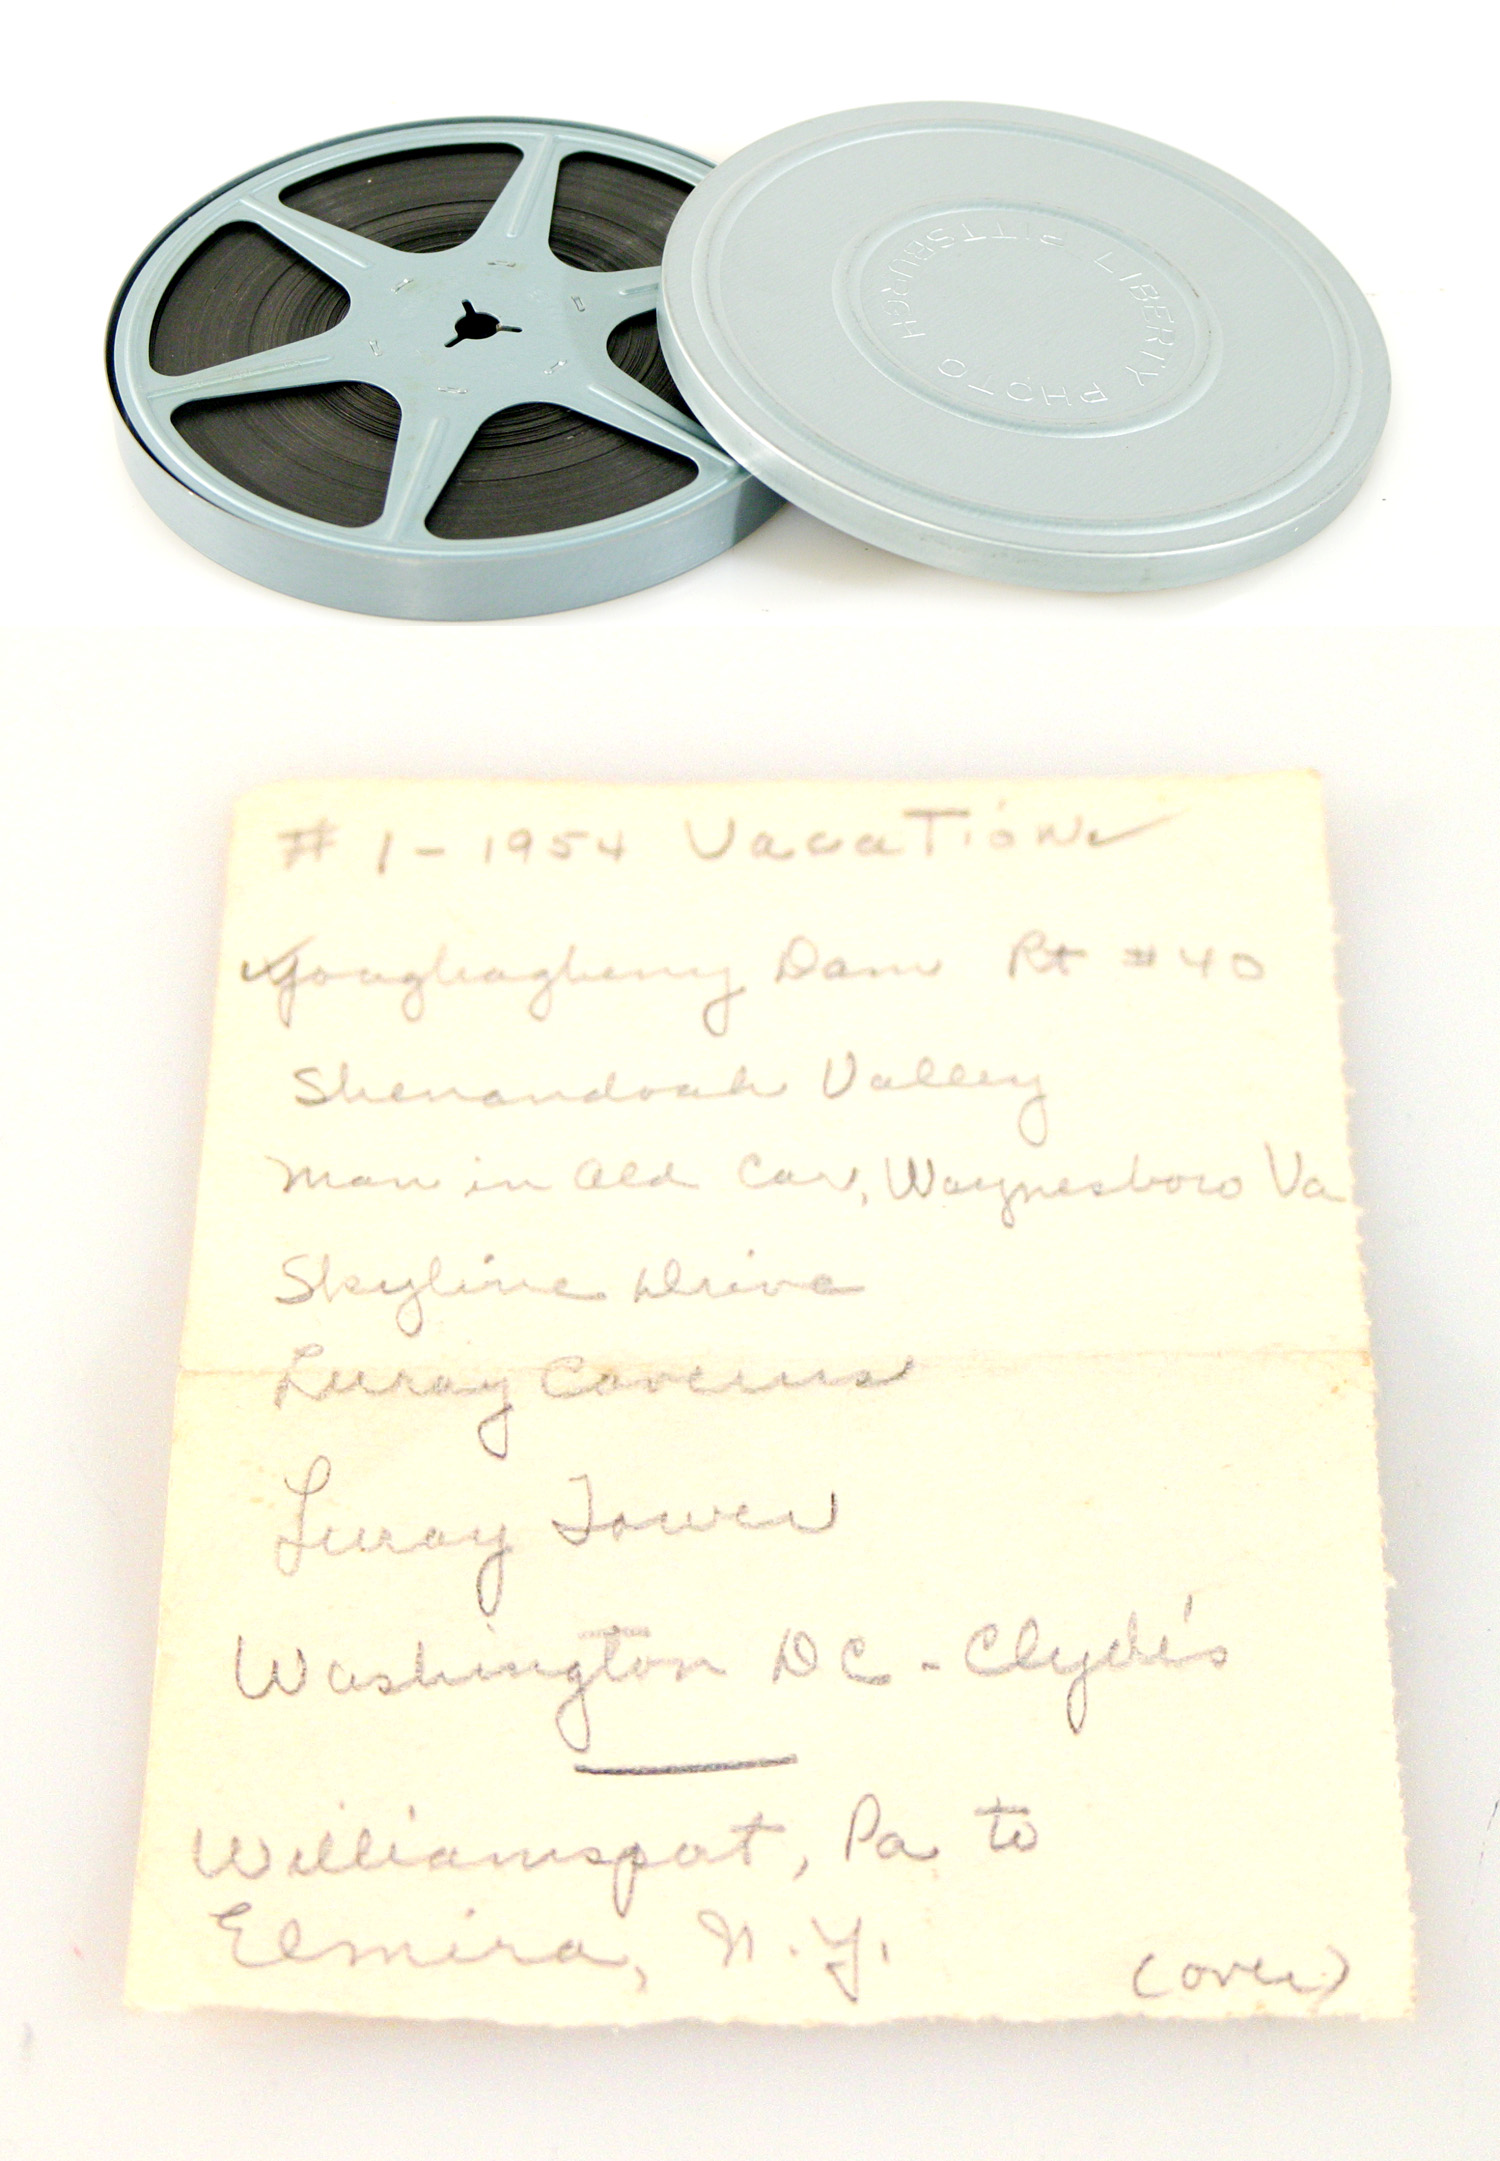 LIBERTY PHOTO PITTSBURGH PHOTO
# 1 - 1954 Vacation
Youghagheny Dam Rt #40
Shenandoah Valley
Man in Old Car, Waynesboro Va
Skyline Drive
Luray Caverns
Luray Tower
Washington DC - Clyde's
Williamsport, Pa to
Elmira, N.Y.
(over)